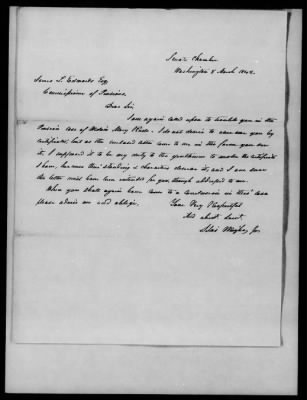 Senate Chamber
Washington 8 March 1842.
James L. Edwards Esq
Commissioner of Pensions,
Dear Sir
I am again called upon to trouble you in the
Pension case of Widow Mary . I do not desire to you by
certificates, but as the enclosed come to me in the form you see
it, I supposed it to be my duty to the gentlemen to the certificate
I know, their standing & characters deserve it, and I am sure
the letter must have been intended for you, though addressed to me.
When you shall again have come to a conclusion in this case
please advise me and oblige.
Your Very Respectful
And obedt. Servt.
Silas Wright, Jr.